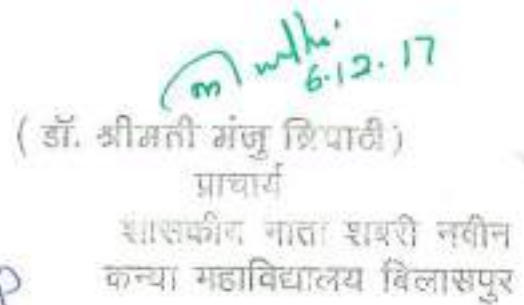 6.12.17
( डॉ. श्रीमती मंजु त्रिपाठी )
प्राचार्य
शासकीय माता शबरी नवीन
कन्या महाविद्यालय बिलासपुर